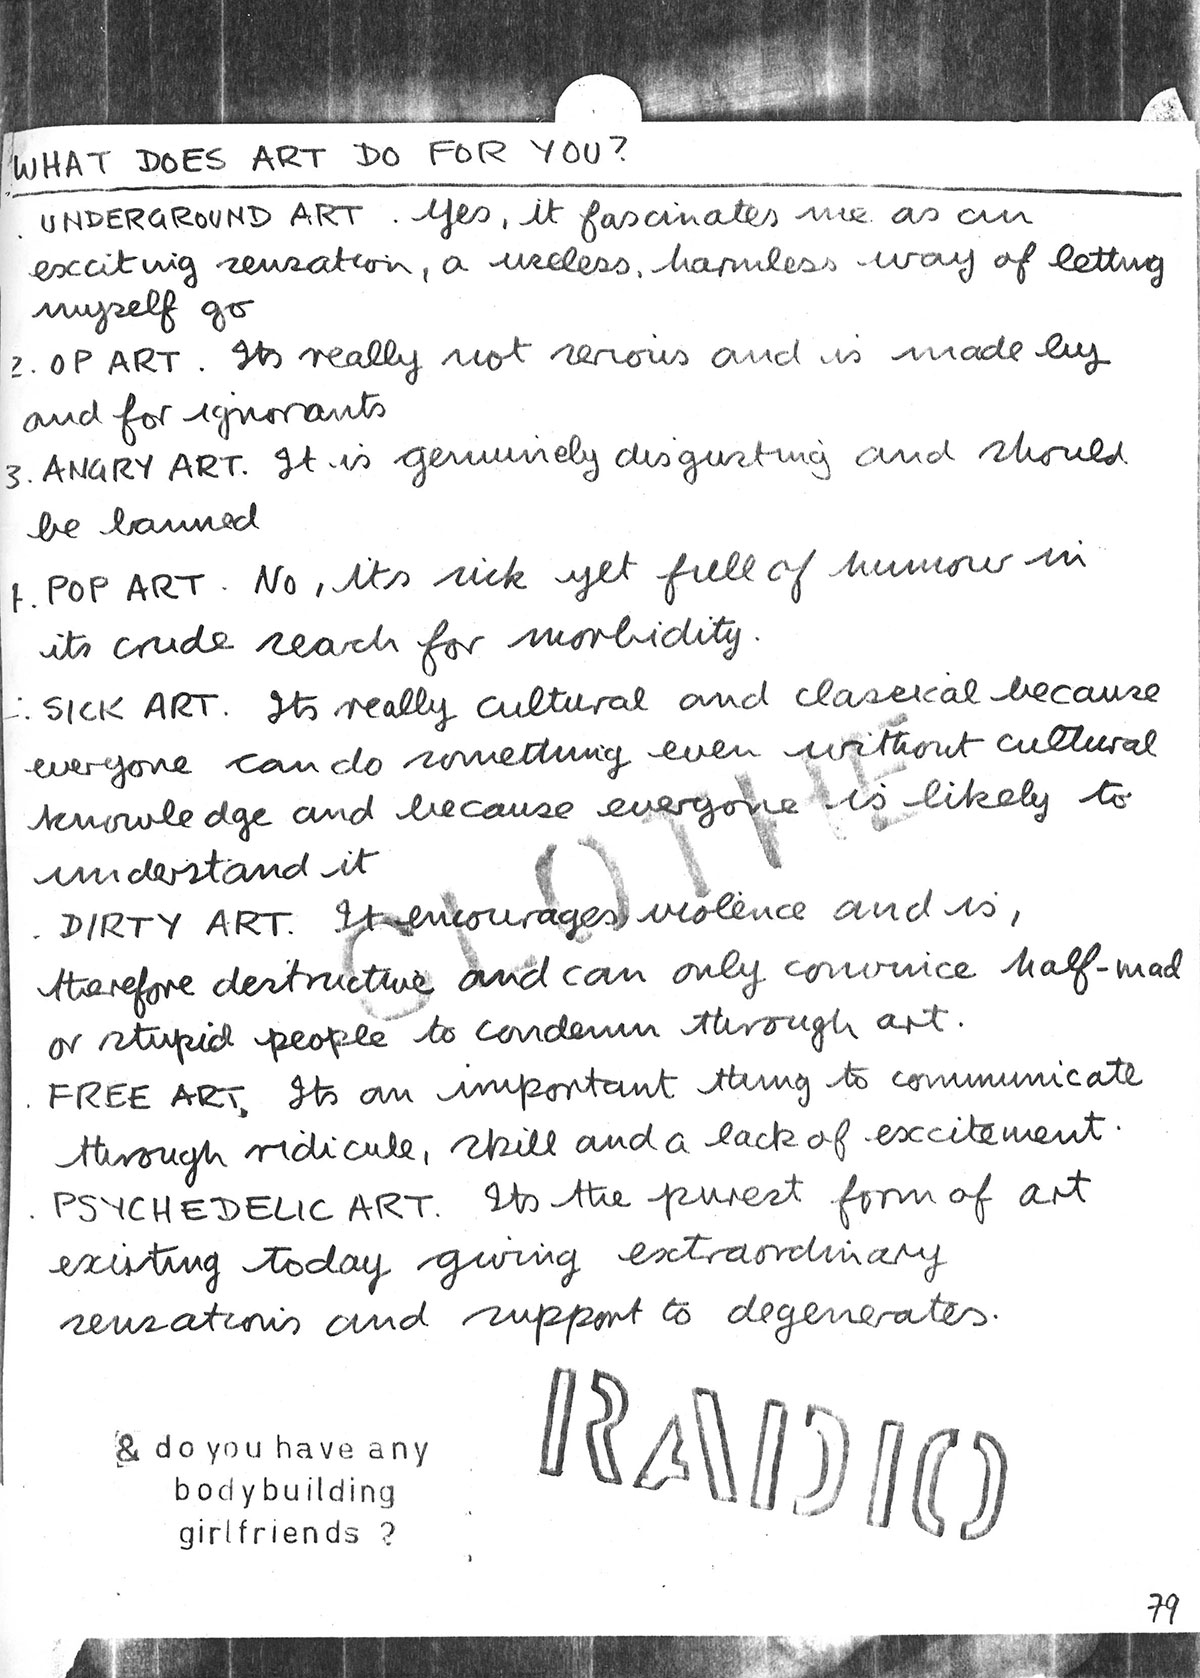 WHAT DOES ART DO FOR YOU?
. UNDERGROUND ART . Yes, it fascinates me as an
exciting sensation, a useless, harmless way of letting
myself go
2. OP ART . Its really not serious and is made by
and for ignorants
3. ANGRY ART. It is genuinely disgusting and should
be banned
. POP ART . No, its sick yet full of humour in
its crude seach for morbidity.
. SICK ART. Its really cultural and classical because
everyone can do something even without cultural
knowledge and because everyone is likely to
understand it
. DIRTY ART. It encourages violence and is,
therefore destructive and can only convince half-mad
or stupid people to condemn through art.
. FREE ART. Its an important thing to communicate
through ridicule, skill and a lack of excitement.
. PSYCHEDELIC ART. Its the purest form of art
existing today giving extraordinary
sensations and support to degenerates.
CLOTHE
RADIO
& do you have any
bodybuilding
girlfriends ?
79